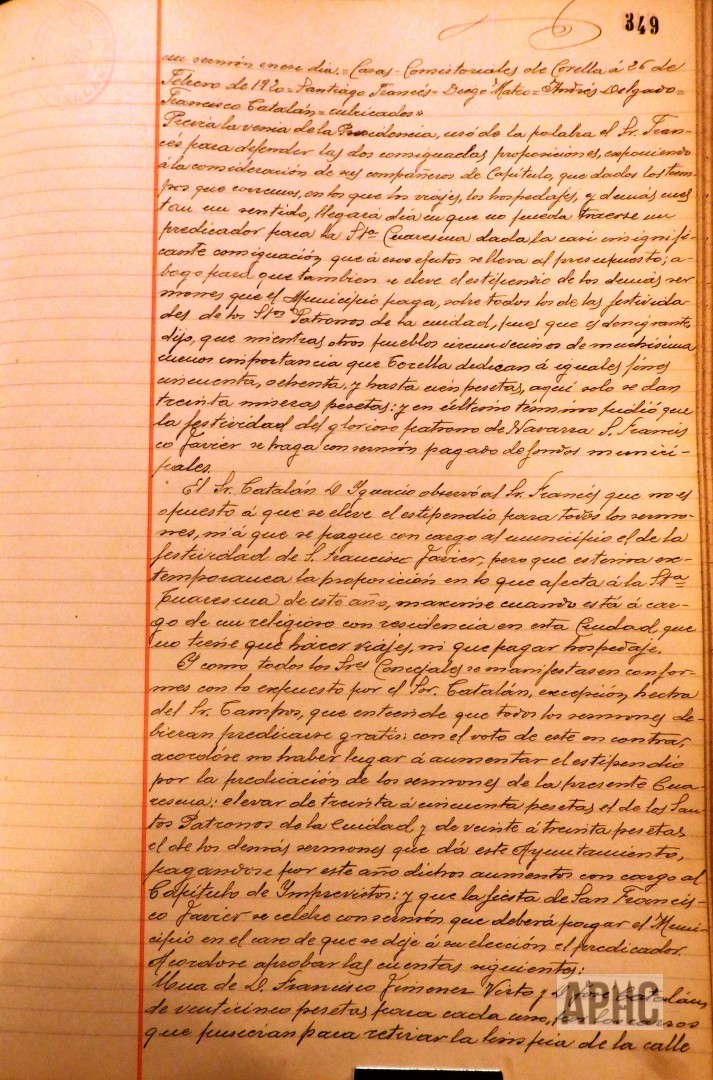 349
un sermón en ese dia.= Casas-Consistoriales de Corella á 26 de
Febrero de 1920=Santiago Francés=Diego Mateo=Andrés Delgado=
Francisco Catalán=rubricados»
Previa la venia de la Presidencia, usó de la palabra el Sr. Fran-
cés para defender las dos consignadas proposiciones, exponiendo
á la consideración de sus compañeros de Capítulo, que dados los tiem-
pos que corremos, en los que los viajes, los hospedajes, y demás cues-
tan un sentido, llegará dia en que no pueda traerse un
predicador para la Sta Cuaresma dada la casi insignifi-
cante consignación que á esos efectos se lleva al presupuesto; a-
bogó para que tambien se eleve el estipendio de los demás ser
mones que el Municipio paga, sobre todos los de las festivida-
des de los Stos Patronos de la ciudad, pues que es denigrante,
dijo, que mientras otros pueblos circunvecinos de muchísima
menos importancia que Corella dedican á iguales fines
cincuenta, ochenta y hasta cien pesetas, aquí solo se dan
treinta míseras pesetas: y en último término pidió que
la festividad del glorioso patrono de Navarra S. Francis
co Javier se haga con sermón pagado de fondos munici-
pales.
El Sr. Catalán D. Ignacio observó al Sr. Francés que no es
opuesto á que se eleve el estipendio para todos los sermo-
nes, ni á que se pague con cargo al municipio el de la
festividad de S. Francisco Javier, pero que estima ex-
temporanea la proposición en lo que afecta á la Sta
Cuaresma de este año, maxime cuando está á car-
go de un religioso con residencia en esta Ciudad, que
no tiene que hacer viajes, ni que pagar hospedaje.
Y como todos los Sres Concejales se manifestasen confor-
mes con lo expuesto por el Sor. Catalán, excepción hecha
del Sr. Campos, que entiende que todos los sermones de-
bieran predicarse gratis: con el voto de este en contra,
acordóse no haber lugar á aumentar el estipendio
por la predicación de los sermones de la presente Cua-
resma: elevar de treinta á cincuenta pesetas el de los San-
tos Patronos de la Ciudad y de veinte á treinta pesetas
el de los demás sermones que dá este Ayuntamiento,
pagandose por este año dichos aumentos con cargo al
Capítulo de Imprevistos: y que la fiesta de San Francis-
co Javier se celebre con sermón que deberá pagar el Muni-
cipio en el caso de que se deje á su elección el predicador.
Acordose aprobar las cuentas siguientes:
Una de D. Francisco Jimenez Virto y Catalán
de venticinco pesetas para cada uno,
que pusieran para retirar la limpia de la calle
APHC